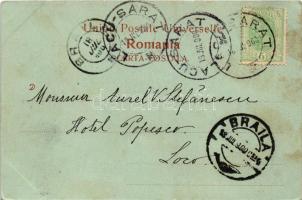 Union Postale Universelle
Romania
CARTA POSTALA
LACU-SARAT
LACU-SARAT
Monsieur Aurel V. Stefănescu
Hotel Popesco
Loco
BRAILA